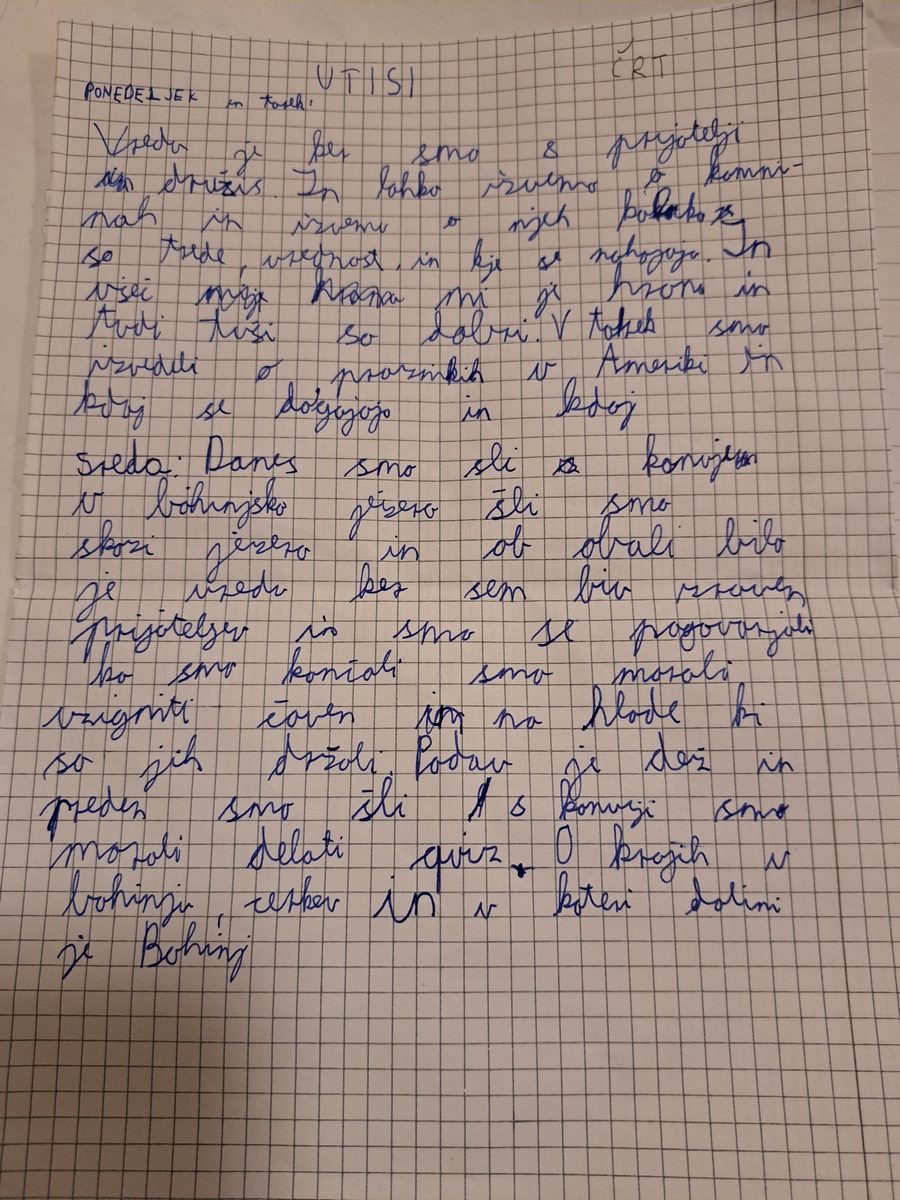 UTISI ČRT
PONEDELJEK in torek:
Vredu je ker smo s prijatelji
in družis. In lahko izvemo o kamni-
nah in izvemo o njih kako
so trde, vrednost, in kje se nahajajo. In
všeč mi je hrana in
tudi tuši so dobri. V torek smo
izvedeli o praznikih v Ameriki in
kdaj se dogajajo in kdaj
sreda: Danes smo šli s kanujem
v bohinjsko jezero šli smo
skozi jezero in ob obali bilo
je vredu ker sem biv zraven
prijateljev in smo se pogovarjali
ko smo končali smo morali
vzigniti čoven in na hlode ki
so jih držali. Padav je dež in
preden smo šli s kanuji smo
morali delati qviz. O krajih v
bohinju, cerkev in v kateri dolini
je Bohinj